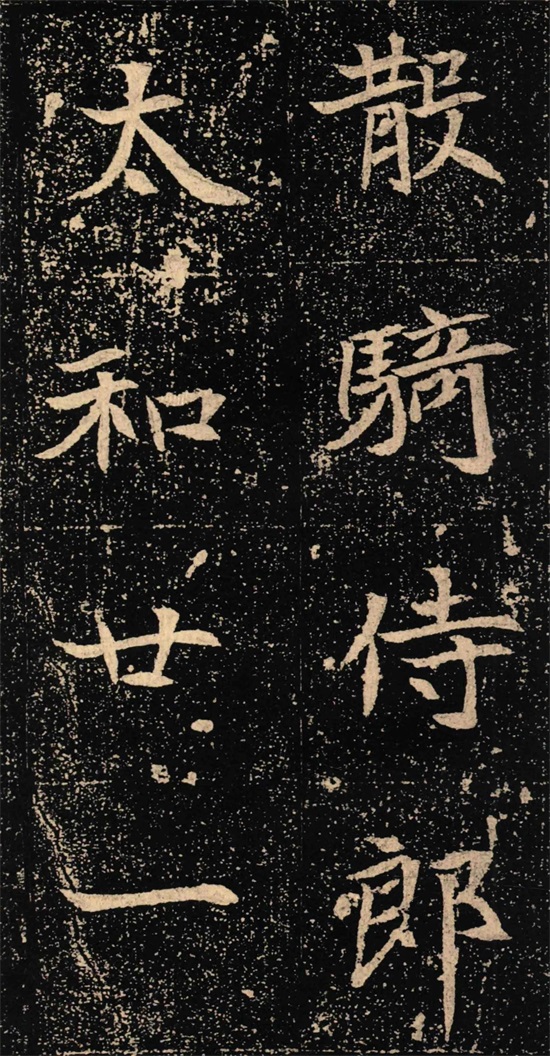 散騎侍郎
太和廿一